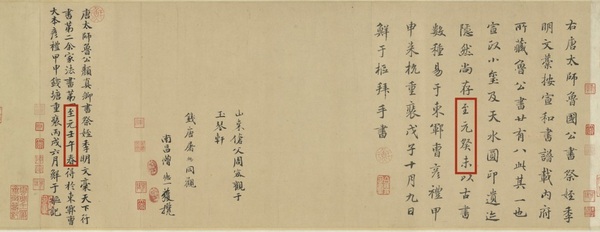 右唐太師魯國公書祭姪季
明文藁按宣和書譜載内府
所藏魯公書廿有八此其一也
宣政小璽及天水圓印遺迹
隱然尚存至元癸未以古書
數種易于東鄆曹彥禮甲
申來杭重裝戊子十月九日
鮮于樞拜手書
山東傖父周密觀于
玉琴軒
錢唐屠同觀
南昌僧一獲攬
唐太師魯公顏真卿書祭姪季明文藁天下行
書第二余家法書第一至元壬午春得於東鄆曹
大本彥禮甲申錢塘重裝丙戌六月鮮于樞記